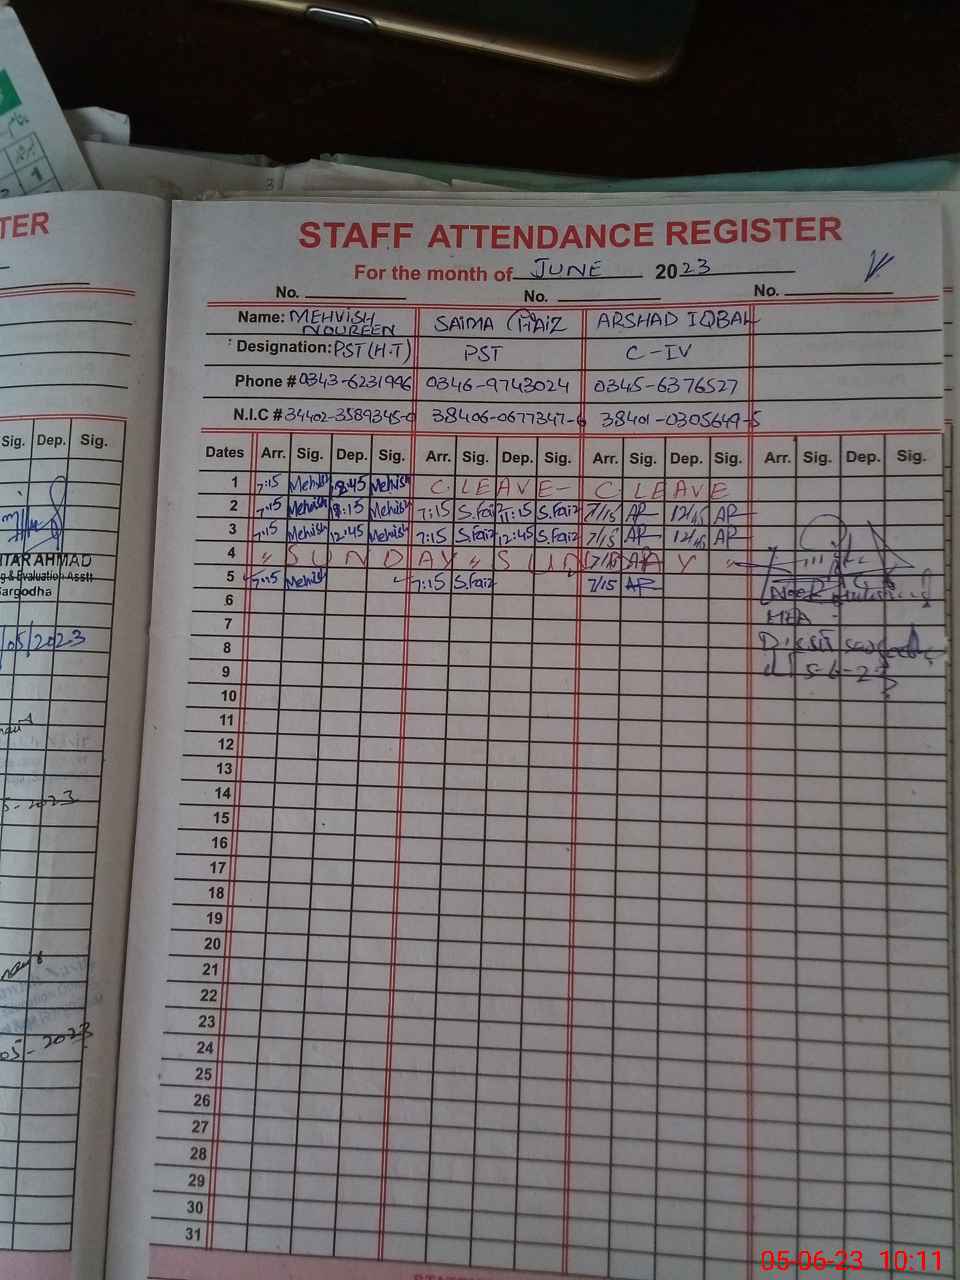 TER
Sig. Dep. Sig.
TAR AHMAD
g & Evaluation Asstt
argodha
/05/2023
5-2023
05-2023
STAFF ATTENDANCE REGISTER
For the month of JUNE 2023
No. No. No.
Name: MEHVISH NOUREEN SAIMA FAIZ ARSHAD IQBAL
Designation: PST (H.T) PST C-IV
Phone # 0343-6231996 0346-9743024 0345-6376527
N.I.C # 34402-3589345-0 38406-0677347-6 38401-0305649-5
Dates Arr. Sig. Dep. Sig. Arr. Sig. Dep. Sig. Arr. Sig. Dep. Sig. Arr. Sig. Dep. Sig.
1 7:15 Mehvish 8:45 Mehvish C LEAVE- C LEAVE
2 7:15 Mehvish Mehvish 7:15 S.Faiz 11:15 S.Faiz 7/15 AR 12/45 AR
3 7:15 Mehvish 12:45 Mehvish 7:15 S.Faiz 12:45 S.Faiz 7/15 AR 12/45 AR
4 " SUNDAY " SUNDAY "
5 7:15 Mehvish 7:15 S.Faiz 7/15 AR
6
7 MEA
8
9 5-6-23
10
11
12
13
14
15
16
17
18
19
20
21
22
23
24
25
26
27
28
29
30
31
05-06-23 10:11